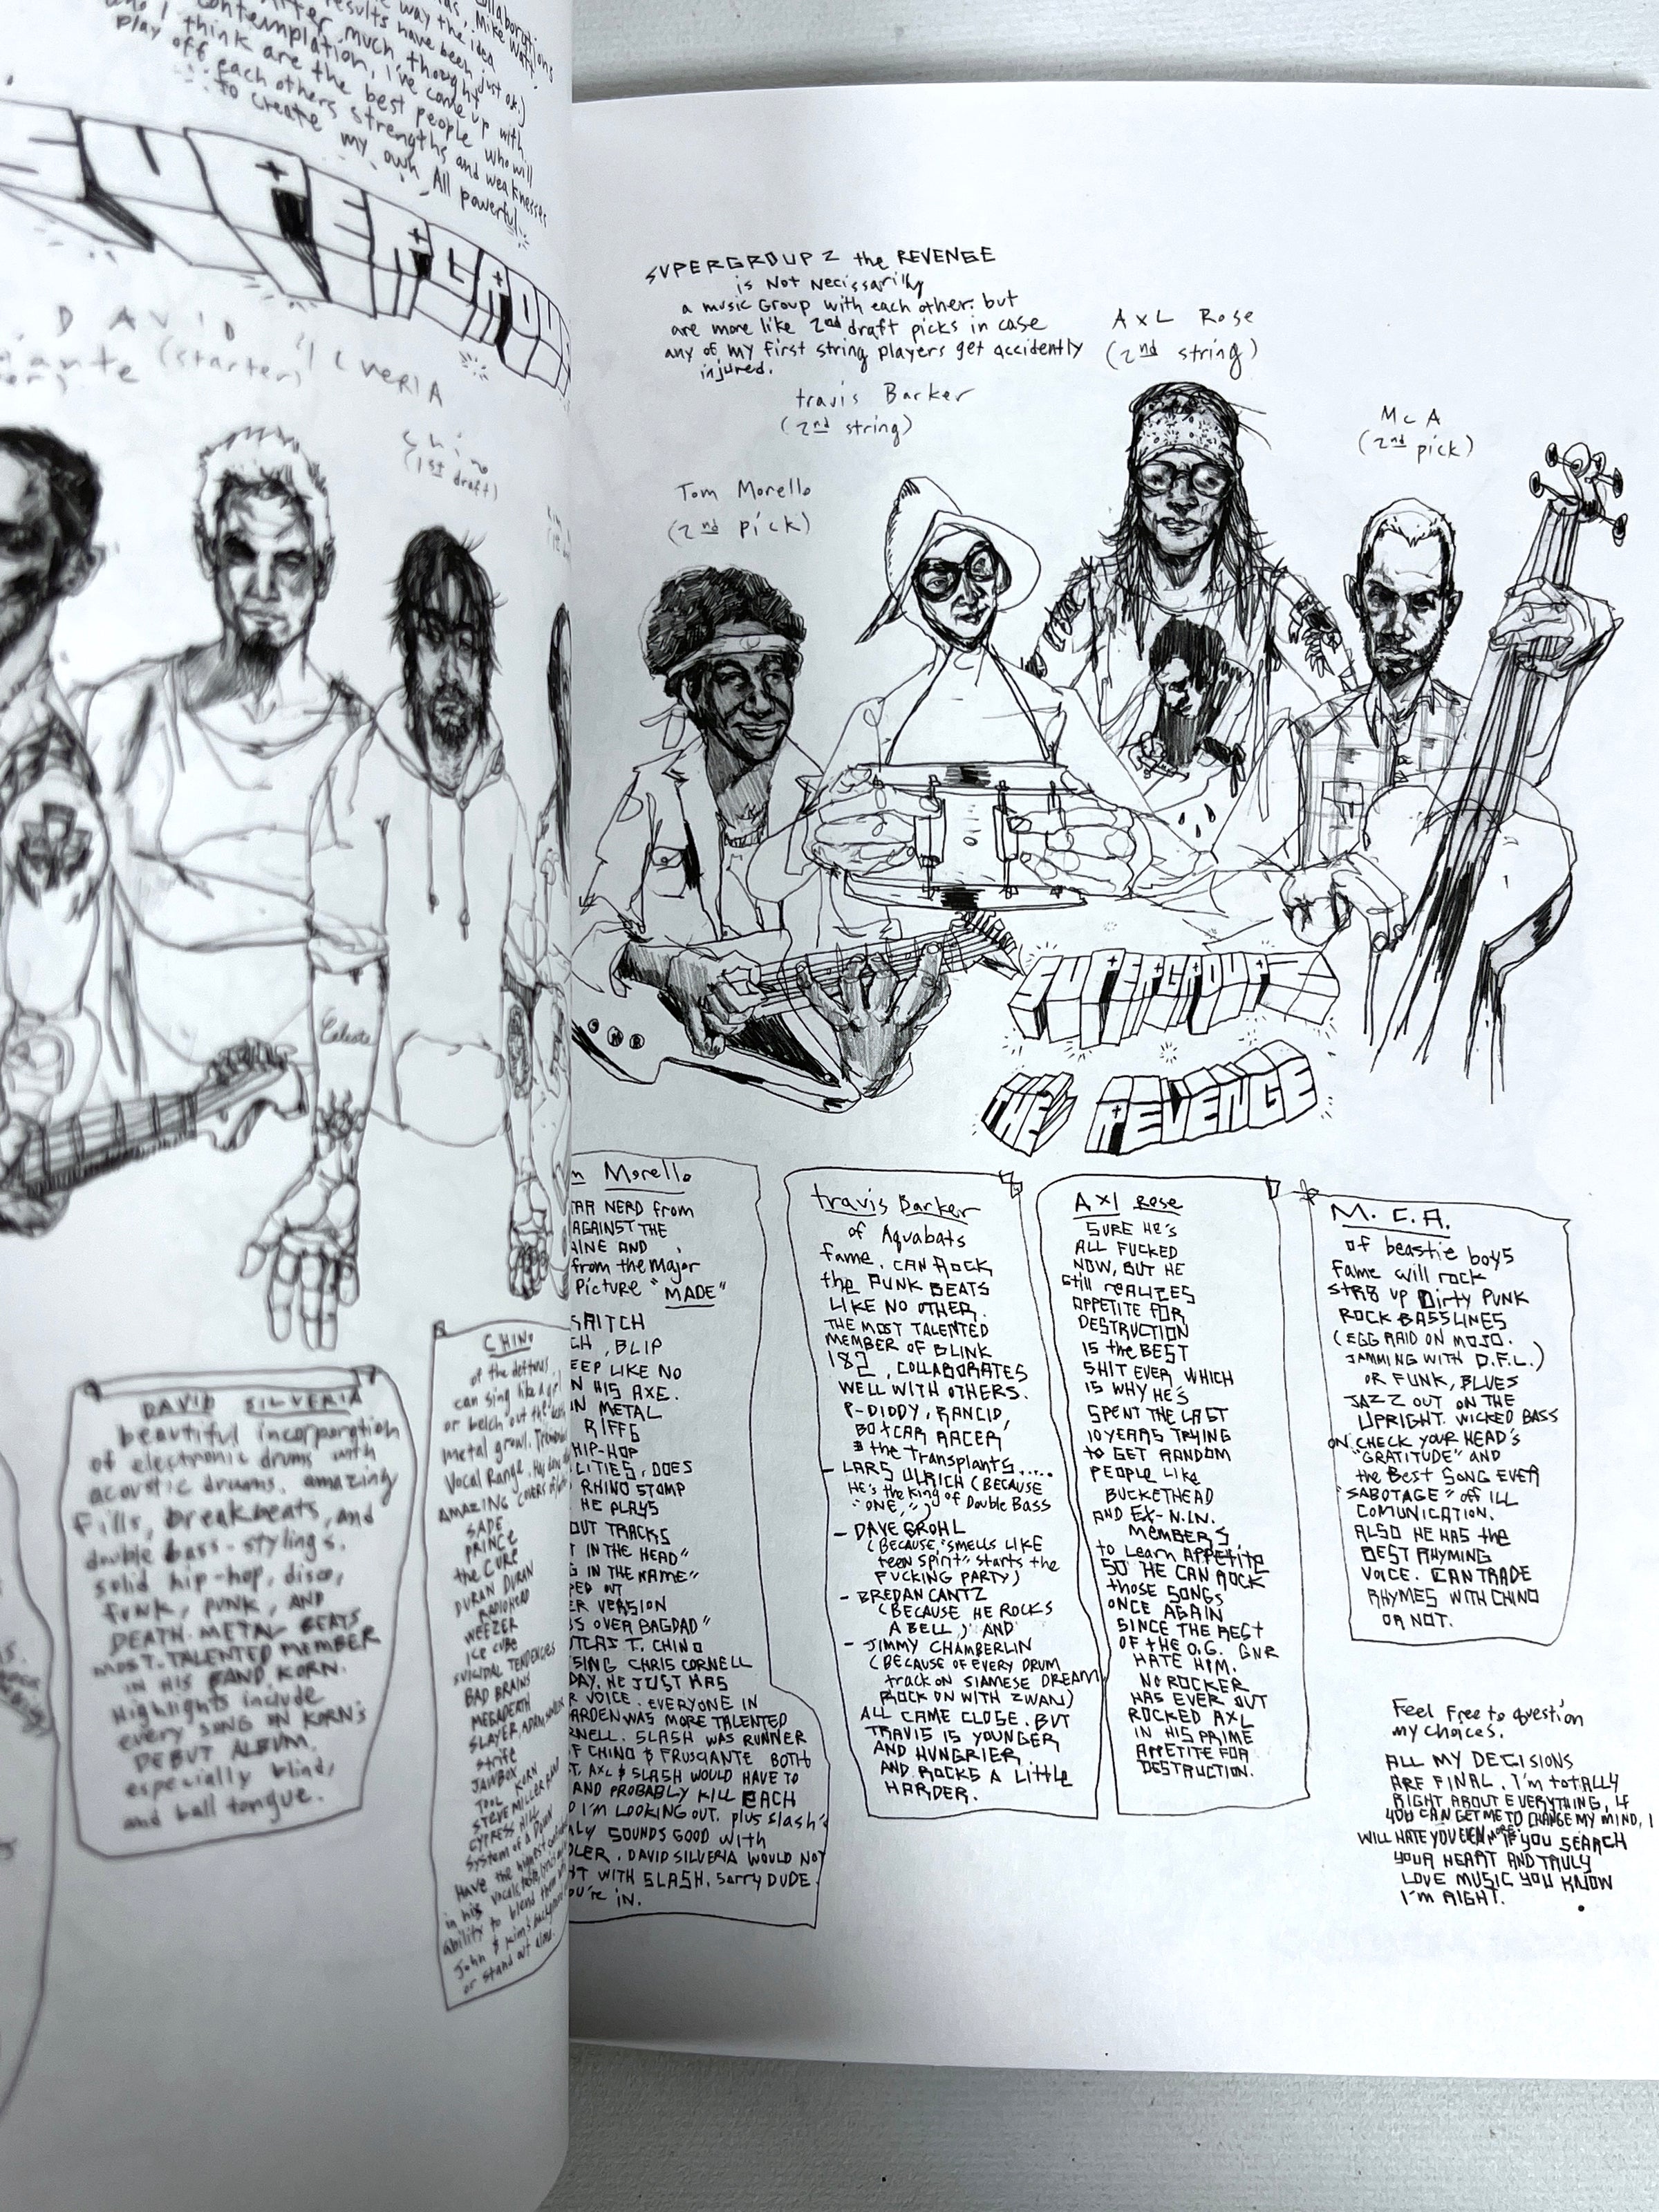 collaborations
Mike Watt,
way the idea
results have been just ok.)
After much thought
contemplation, I've come up with
I think are the best people who will
play off each others strengths and weaknesses
to create my own All powerful
SUPERGROU
DAVID SILVERIA
(starter)
Chino
(1st draft)
Celeste
DAVID SILVERIA
beautiful incorporation
of electronic drums with
acoustic drums. amazing
fills, breakbeats, and
double bass-stylings.
solid hip-hop, disco,
funk, punk, AND
DEATH-METAL BEATS
MOST TALENTED MEMBER
IN HIS BAND, KORN.
Highlights include
every SONG ON KORN'S
DEBUT ALBUM.
especially blind,
and ball tongue.
CHINO
of the deftones
can sing like a girl
or belch out the death
metal growl.
Vocal Range. He's done
AMAZING COVERS of
SADE
PRINCE
the CURE
DURAN DURAN
RADIOHEAD
WEEZER
ICE CUBE
SUICIDAL TENDENCIES
BAD BRAINS
MEGADEATH
SLAYER,
Strife
JAWBOX
TOOL KORN
STEVE MILLER BAND
CYPRESS HILL
System of a Down
Have the highest
in his vocals
ability to blend
John & Kim's
or stand out alone.
SUPERGROUP 2 the REVENGE
is Not Necissarilly
a music Group with each other. but
are more like 2nd draft picks in case
any of my first string players get accidently
injured.
Axl Rose
(2nd string)
travis Barker
(2nd string)
McA
(2nd pick)
Tom Morello
(2nd pick)
SUPERGROUP 2
THE REVENGE
m Morello
TAR NERD from
AGAINST THE
AINE AND
from the Major
Picture "MADE"
SCRITCH
CH, BLIP
EEP LIKE NO
N HIS AXE.
N METAL
RIFFS
HIP-HOP
LITIES, DOES
RHINO STOMP
HE PLAYS
OUT TRACKS
T IN THE HEAD"
G IN THE NAME"
PED OUT
ER VERSION
S OVER BAGDAD"
UTCAST. CHINO
SING CHRIS CORNELL
DAY. HE JUST HAS
R VOICE. EVERYONE IN
ARDEN WAS MORE TALENTED
RNELL. SLASH WAS RUNNER
F CHINO & FRUSCIANTE BOTH
T, AXL & SLASH WOULD HAVE TO
AND PROBABLY KILL EACH
O I'M LOOKING OUT. plus Slash's
LY SOUNDS GOOD WITH
DLER. DAVID SILVERIA WOULD NOT
HT WITH SLASH. Sorry DUDE.
OU'RE IN.
travis Barker
of Aquabats
fame. CAN ROCK
the PUNK BEATS
LIKE NO OTHER.
THE MOST TALENTED
MEMBER OF BLINK
182, COLLABORATES
WELL WITH OTHERS.
P-DIDDY, RANCID,
BOXCAR RACER
& the Transplants.....
- LARS ULRICH (BECAUSE
HE'S the King of Double Bass
"ONE,")
- DAVE GROHL
(BECAUSE "SMELLS LIKE
teen Spirit" starts the
FUCKING PARTY)
- BREDAN CANTZ
(BECAUSE HE ROCKS
A BELL,) AND
- JIMMY CHAMBERLIN
(BECAUSE OF EVERY DRUM
track ON SIAMESE DREAM
ROCK ON WITH ZWAN)
ALL CAME CLOSE. BUT
TRAVIS IS YOUNGER
AND HUNGRIER
AND ROCKS A Little
HARDER.
AXl Rose
SURE HE'S
ALL FUCKED
NOW, BUT HE
still REALIZES
APPETITE FOR
DESTRUCTION
IS the BEST
SHIT EVER WHICH
IS WHY HE'S
SPENT THE LAST
10 YEARS TRYING
to GET RANDOM
PEOPLE Like
BUCKETHEAD
AND EX-N.I.N.
MEMBERS
to Learn APPETITE
SO HE CAN ROCK
those SONGS
ONCE AGAIN
SINCE THE REST
OF the O.G. GNR
HATE HIM.
NO ROCKER
HAS EVER OUT
ROCKED AXL
IN HIS PRIME
APPETITE FOR
DESTRUCTION.
M.C.A.
of beastie boys
Fame will rock
STR8 UP DIRTY PUNK
ROCK BASSLINES
(EGG RAID ON MOJO.
JAMMING WITH D.F.L.)
OR FUNK, BLUES
JAZZ OUT ON THE
UPRIGHT. WICKED BASS
ON CHECK YOUR HEAD'S
"GRATITUDE" AND
the BEST SONG EVER
"SABOTAGE" off ILL
COMUNICATION.
ALSO HE HAS the
BEST RHYMING
VOICE. CAN TRADE
RHYMES WITH CHINO
OR NOT.
Feel Free to question
my choices.
ALL MY DECISIONS
ARE FINAL. I'M totALLY
RIGHT ABOUT EVERYTHING, IF
YOU CAN GET ME TO CHANGE MY MIND, I
WILL HATE YOU EVEN MORE. IF YOU SEARCH
YOUR HEART AND TRULY
LOVE MUSIC YOU KNOW
I'M RIGHT.